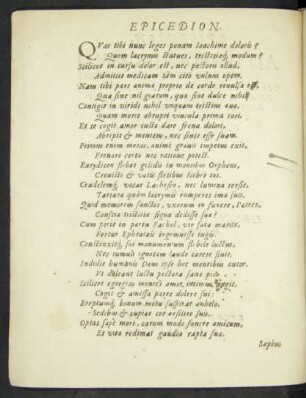 EPICEDION.
QVas tibi nunc leges ponam Ioachime doloris?
Quem lacrymis statues, tristitiæq́; modum?
Scilicet in cursu dolor est, nec pectoris illud,
Admittit meditam tàm citò vulnus opem.
Nam tibi pars animæ propriæ de corde reuulsa est
Qua sine nil gratum, qua sine dulce nihil.
Contigit in viridi nihil vnquam tristius æuo,
Quàm morte abrupit vincula prima tori.
Et te cogit amor iusto dare frena dolori,
Abripit & mentem, nec sinit esse suam.
Primus enim metas, animi grauis impetus exit,
Frenari certa nec ratione potest.
Eurydicen flebat gelidis in montibus Orpheus,
Creuisti & vatis fletibus Hebre tui.
Crudelemq́; vocat Lachesin, nec lumina tersit.
Tartara quàm lacrymis rumperet ima suis.
Quid memorem sanctos, vxorum in funere, Patres,
Constra tristitiæ signa dedisse suæ?
Cum periit in partu Rachel, vir fata marita
Fertur Ephratæis ingemuisse iugis.
Constrinxitq́; sui monumentum flebile luctus,
Nec tumuli ignotam laude carere sinit.
Indidit humanis Deus ipse hos mentibus
Vt doleant luctu pectora sana pio.
Scilicet egregias mentes amor, intimus
Cogit & amissa parte dolere sui:
Ereptumq́; bonum mæsta suspirat anhelo,
Sedibus & cupiat cor resilire suis.
Optas sæpè mori, carum modò funere amicum,
Et vita redimat gaudia rapta suæ.
Sæpius